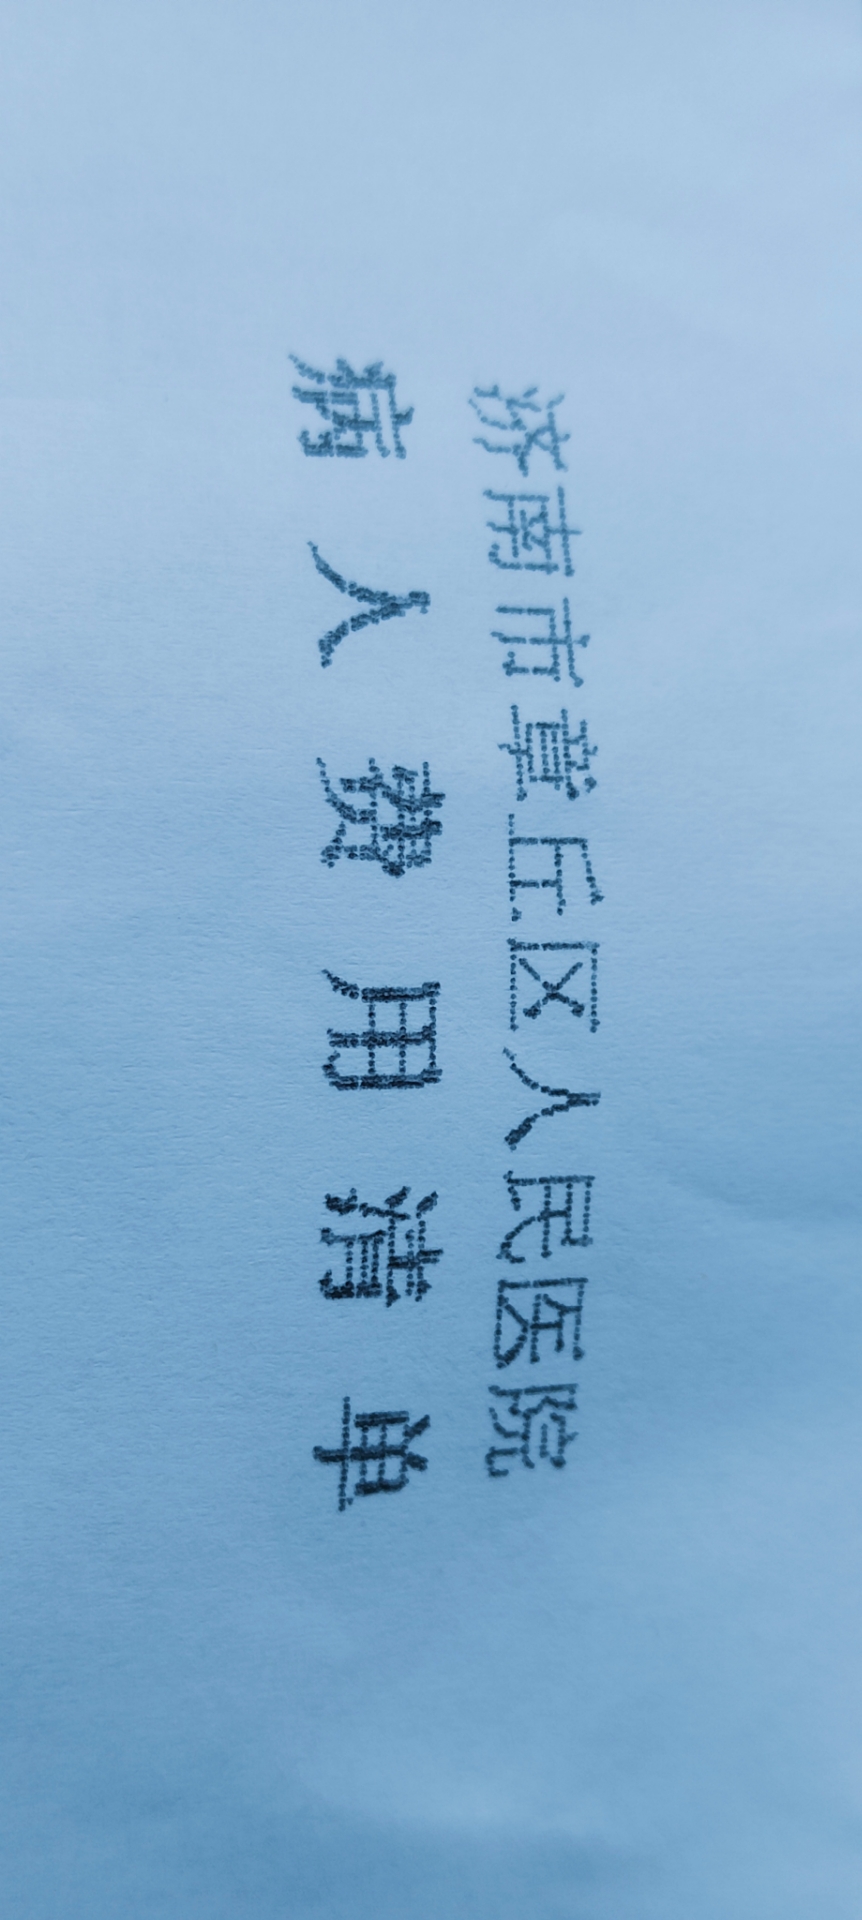 济南市章丘区人民医院
病人费用清单